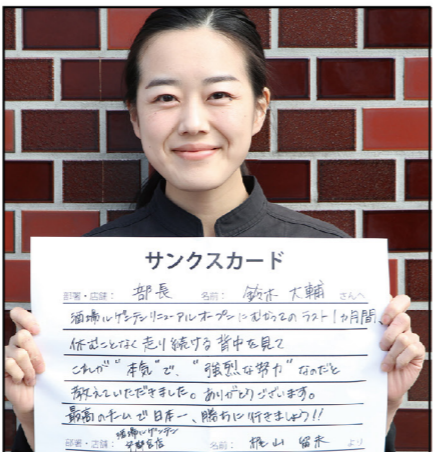 サンクスカード
部署・店舗： 部長 名前： 鈴木 大輔 さんへ
酒場ルゲンテンリニューアルオープンにむかってのラスト1ヵ月間、
休むことなく走り続ける背中を見て
これが"本気"で、"強烈な努力"なのだと
教えていただきました。ありがとうございます。
最高のチームで日本一、勝ちに行きましょう!!
酒場ルゲンテン
部署・店舗： 名前： 梶山 留未 より